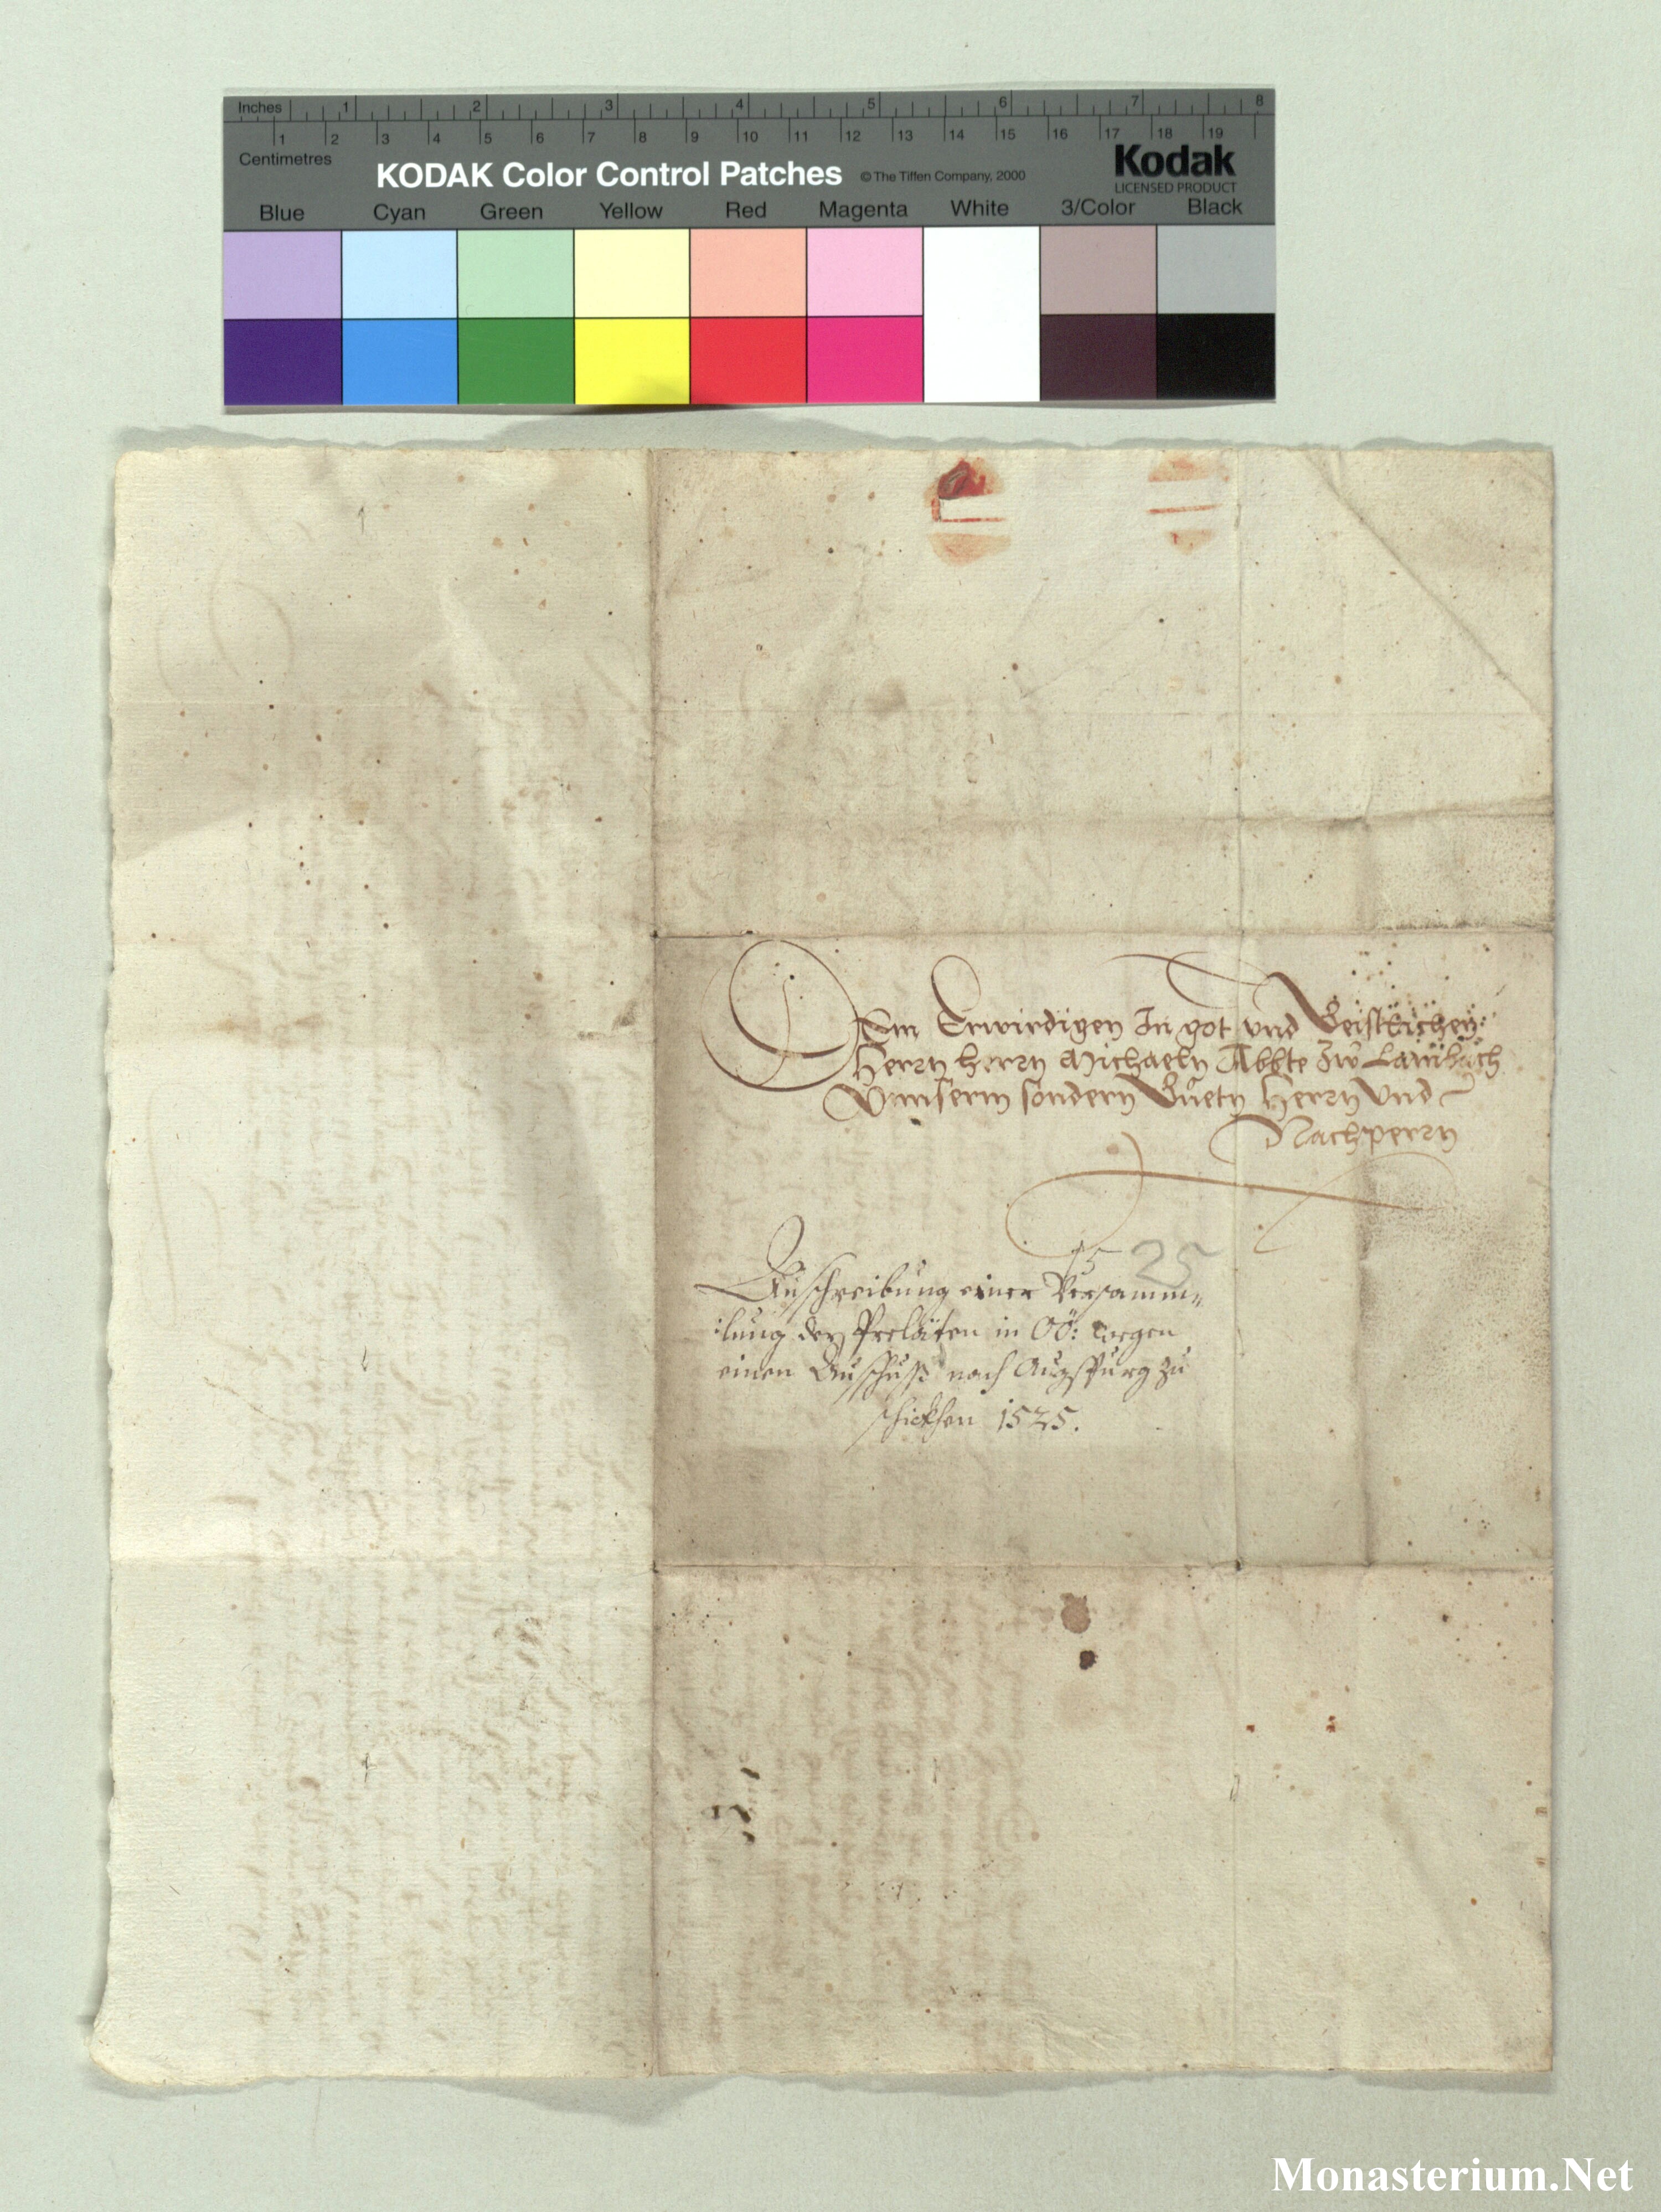 Inches 1 2 3 4 5 6 7 8
1 2 3 4 5 6 7 8 9 10 11 12 13 14 15 16 17 18 19
Centimetres
KODAK Color Control Patches © The Tiffen Company, 2000 Kodak
LICENSED PRODUCT
Blue Cyan Green Yellow Red Magenta White 3/Color Black
Dem Erwirdigen In got vnd Geistlichen
Herrn herrn Michaeln Abbte zw Lambach
Vnnserm sondern Guetn Herrn Vnd
Nachperrn
15 25
Außschreibung einer Versamm„
:lung der Prelaten in OÖ: wegen
einen Außschuß nach Augspurg zu
schickhen 1525.
Monasterium.Net